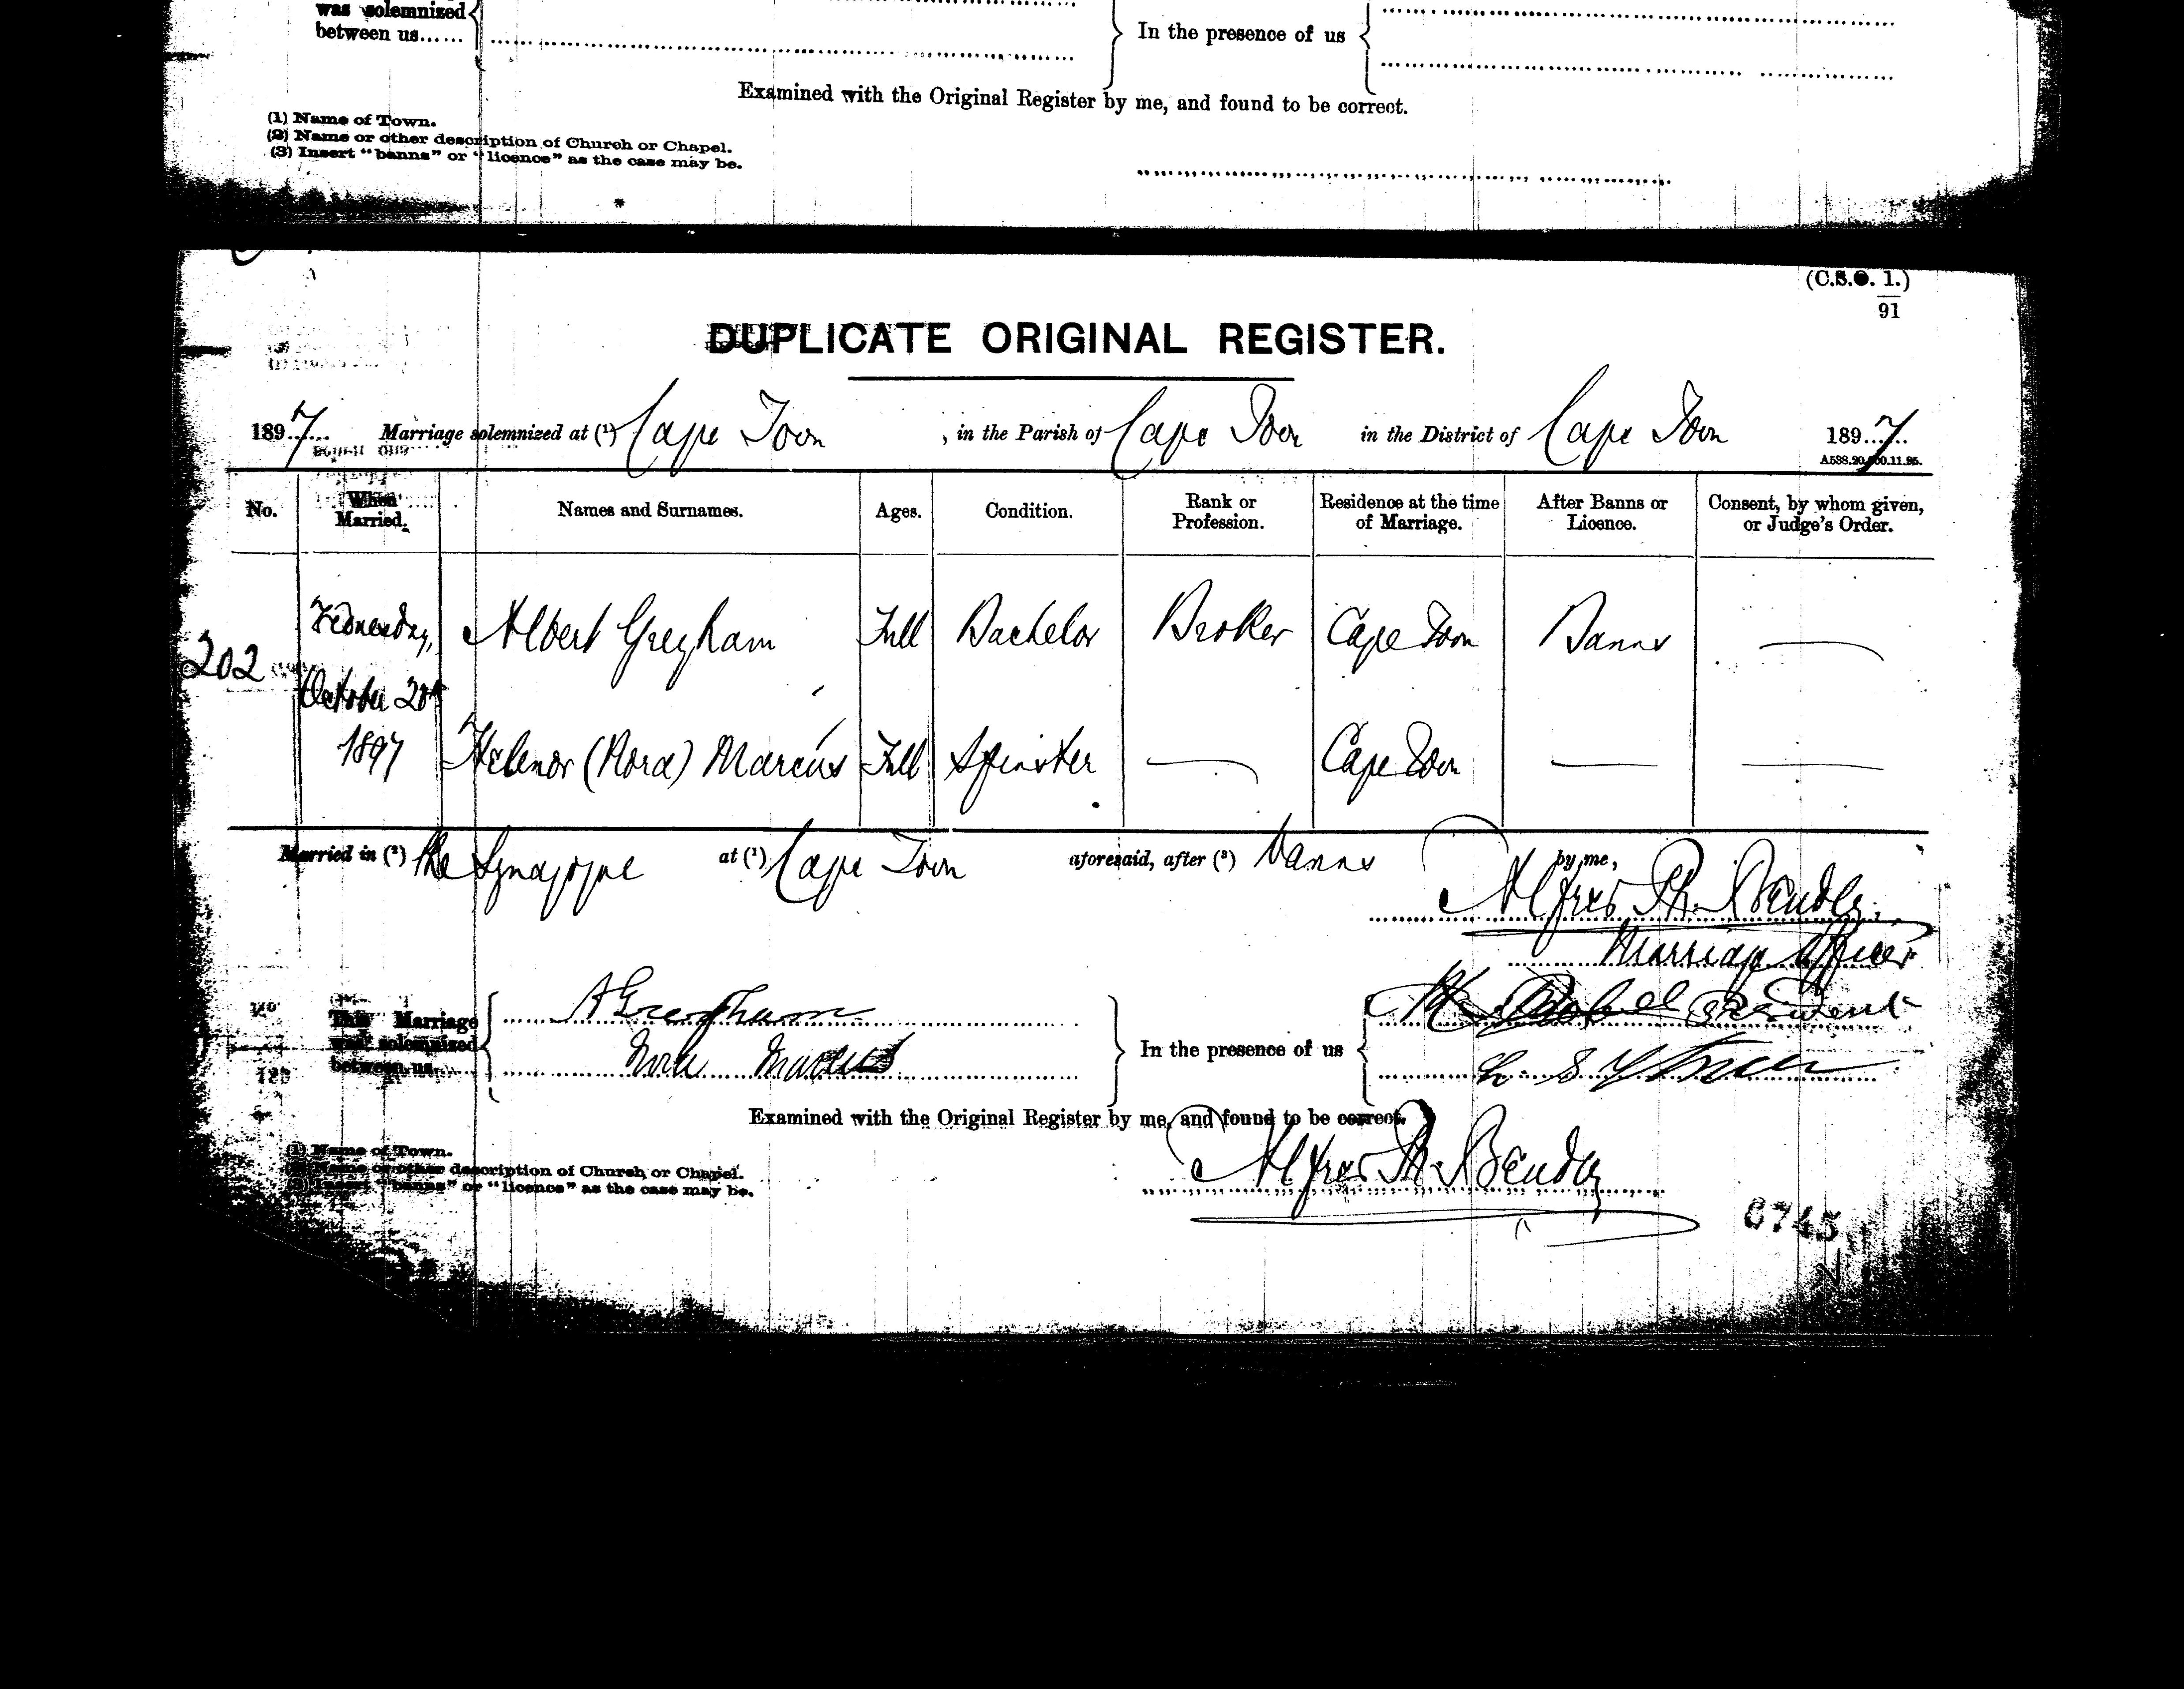 was solemnized
between us...... In the presence of us
Examined with the Original Register by me, and found to be correct.
(1) Name of Town.
(2) Name or other description of Church or Chapel.
(3) Insert "banns" or "licence" as the case may be.
(C.S.O. 1.)
91
DUPLICATE ORIGINAL REGISTER.
1897 Marriage solemnized at (1) Cape Town, in the Parish of Cape Town in the District of Cape Town 1897
No. When Married. Names and Surnames. Ages. Condition. Rank or Profession. Residence at the time of Marriage. After Banns or Licence. Consent, by whom given, or Judge's Order.
202 Wednesday, October 20th 1897
Albert Gregham Full Bachelor Broker Cape Town Banns —
Helenor (Nora) Marcus Full Spinster — Cape Town — —
Married in (2) the Synagogue at (1) Cape Town aforesaid, after (3) banns by me,
Alfred Ph. Bender
Marriage Officer
This Marriage was solemnized between us
A Gregham
Nora Marcus
In the presence of us
President
Examined with the Original Register by me, and found to be correct.
Alfred Ph. Bender
(1) Name of Town.
(2) Name or other description of Church or Chapel.
(3) Insert "banns" or "licence" as the case may be.